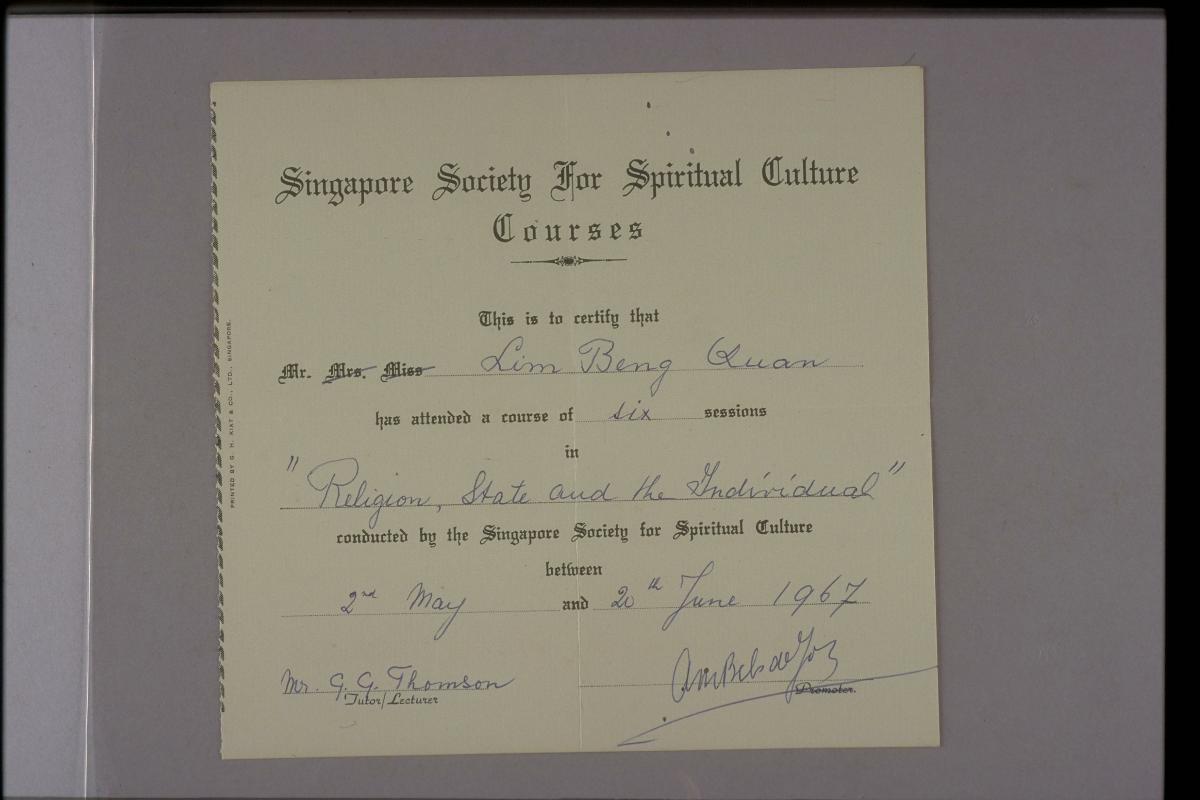 Singapore Society For Spiritual Culture
Courses
This is to certify that
Mr. Mrs. Miss Lim Beng Quan
has attended a course of six sessions
in
"Religion, State and the Individual"
conducted by the Singapore Society for Spiritual Culture
between
2nd May and 20th June 1967
Mr. G. G. Thomson
Tutor/Lecturer
Promoter.
PRINTED BY G. H. KIAT & CO., LTD., SINGAPORE.